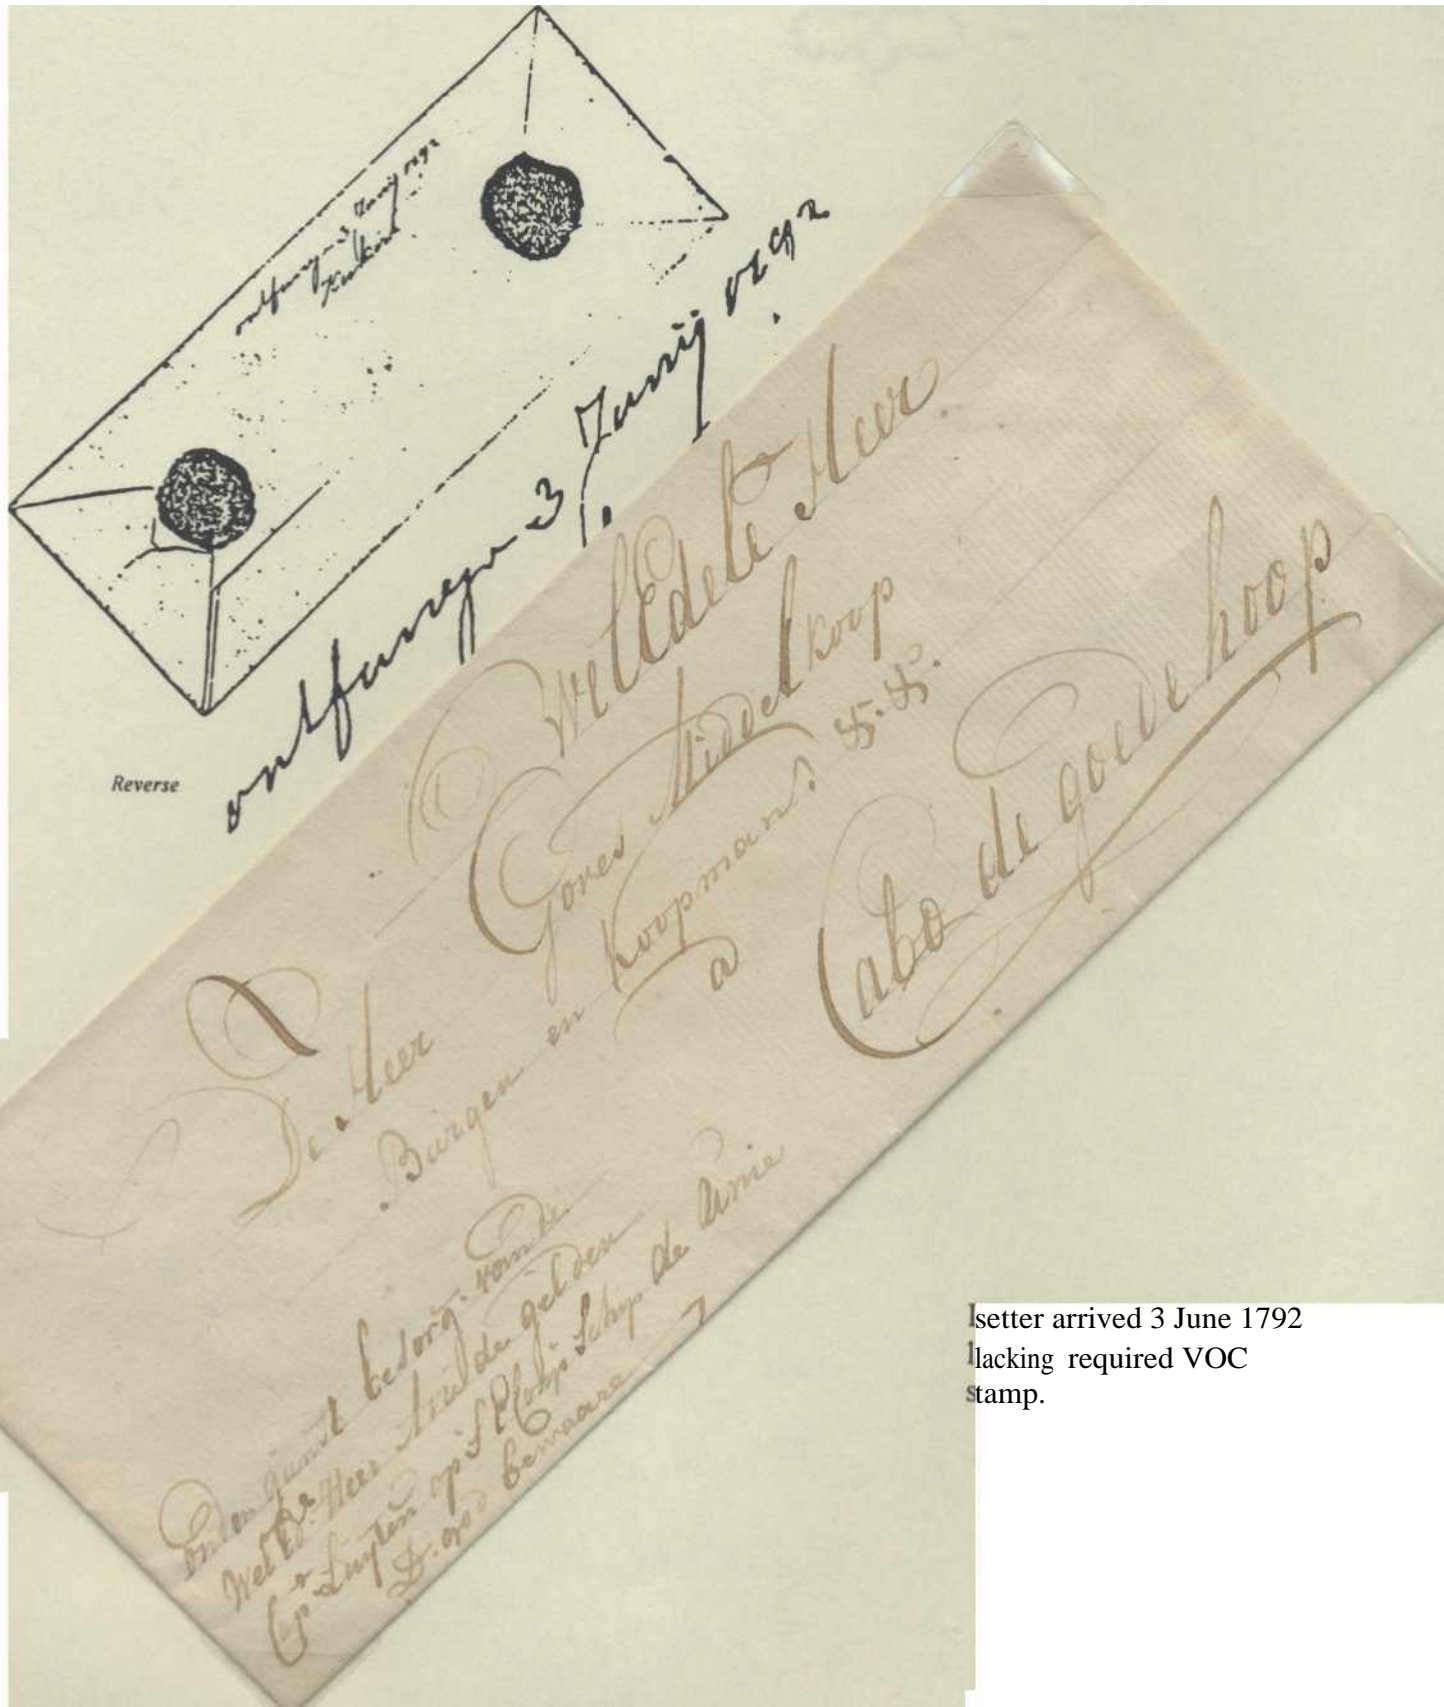 ontfangen 3 Junij 1792
ontfangen 3 Junij 1792
Reverse
Wel Edele Heer
De Heer Gores Middelkoop
Burger en Koopman &. &.
a
Cabo de goede hoop
onder gunst besorg. van de
Wel Ed. Heer de gelden
Cap Luyten op Comp Schip de Unie
D. god bewaare
lsetter arrived 3 June 1792
llacking required VOC
stamp.